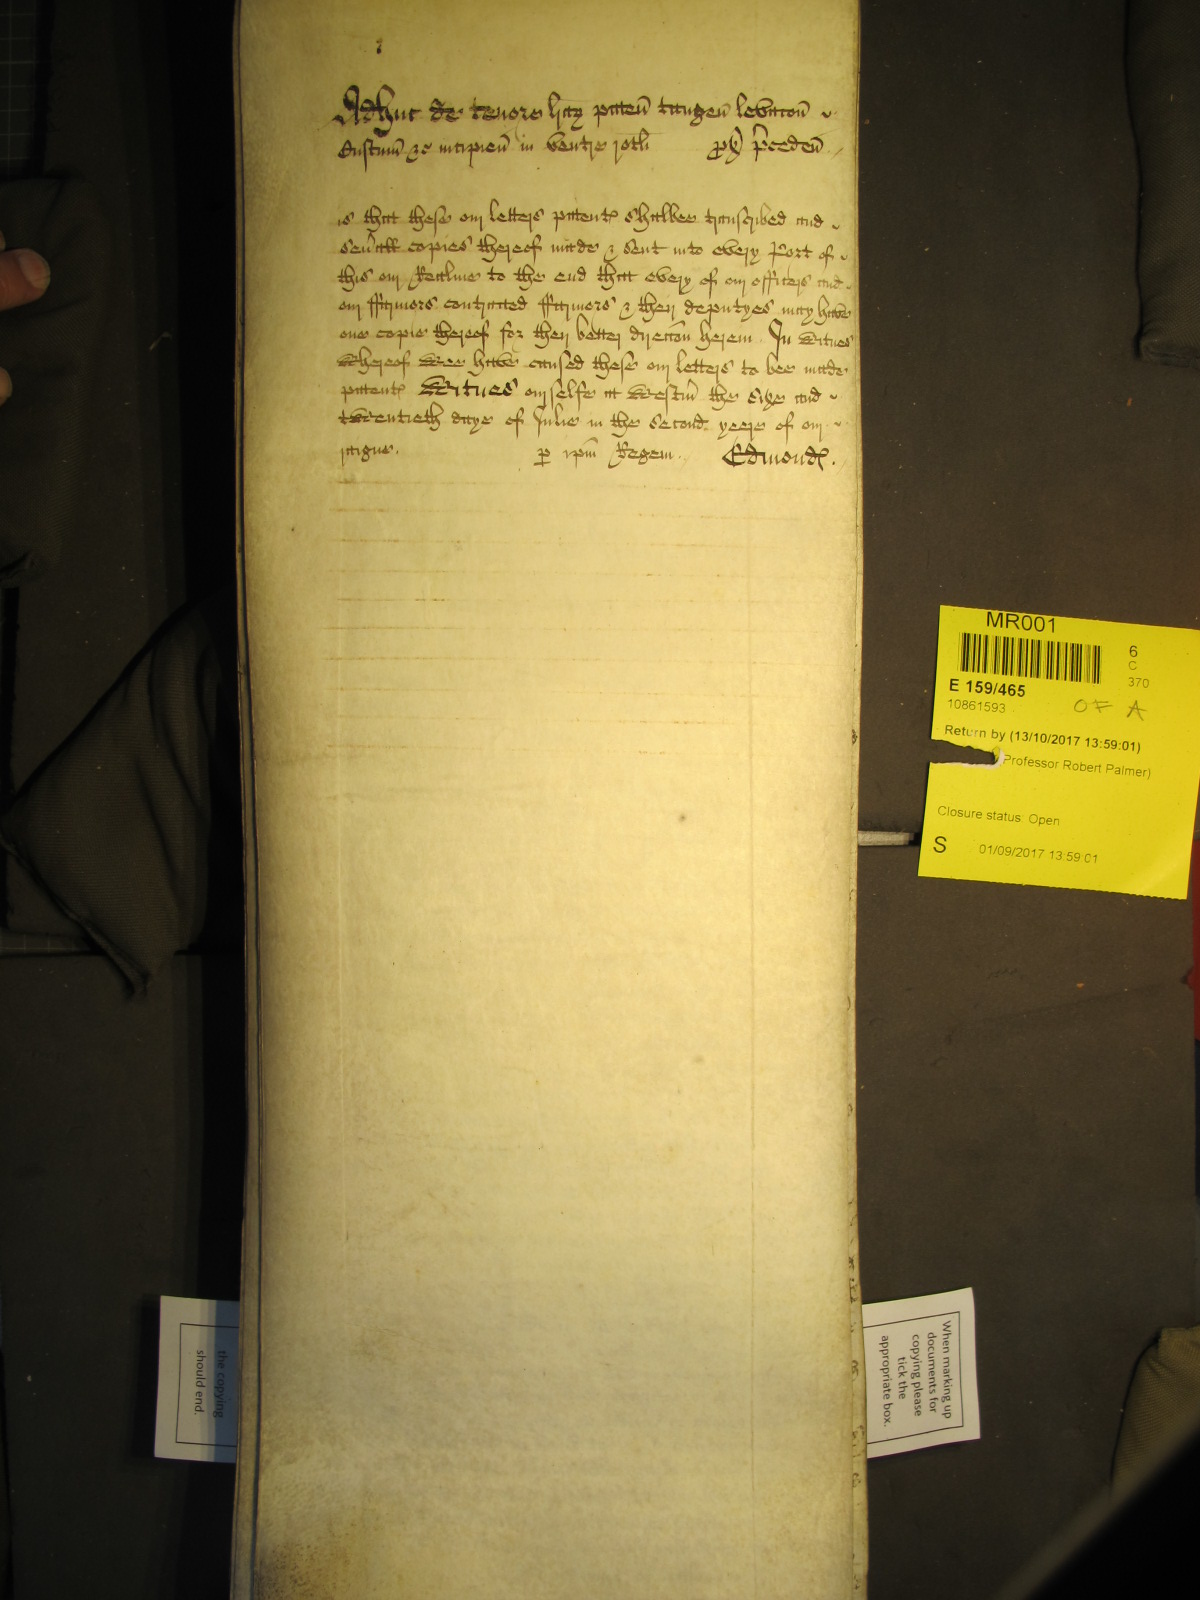 Adhuc de tenore lrãꝝ paten̄ tangen̄ levacon̄
Custum̄ &c incipien̄ in ventre rotli prox̄ p̄ceden̄
is that these our letters patent℮ shalbee transcribed and
sev͛all copies thereof made & sent into every Port of
this our Realme to the end that every of our officers and
our ffarmors contracted ffarmors & their deputyes may have
one copie thereof for their better direccõn herein. In witnes
whereof wee have caused these our letters to bee made
patent℮ Witnes ourselfe at Westm̄ the sixe and
twentieth daye of Julie in the second yeere of our
raigne. ꝑ ip̄m Regem. Edmond℮.
MR001
6
C
370
E 159/465
10861593
OF A
Return by (13/10/2017 13:59:01)
(Professor Robert Palmer)
Closure status: Open
S 01/09/2017 13:59:01
the copying
should end.
When marking up
documents for
copying please
tick the
appropriate box.